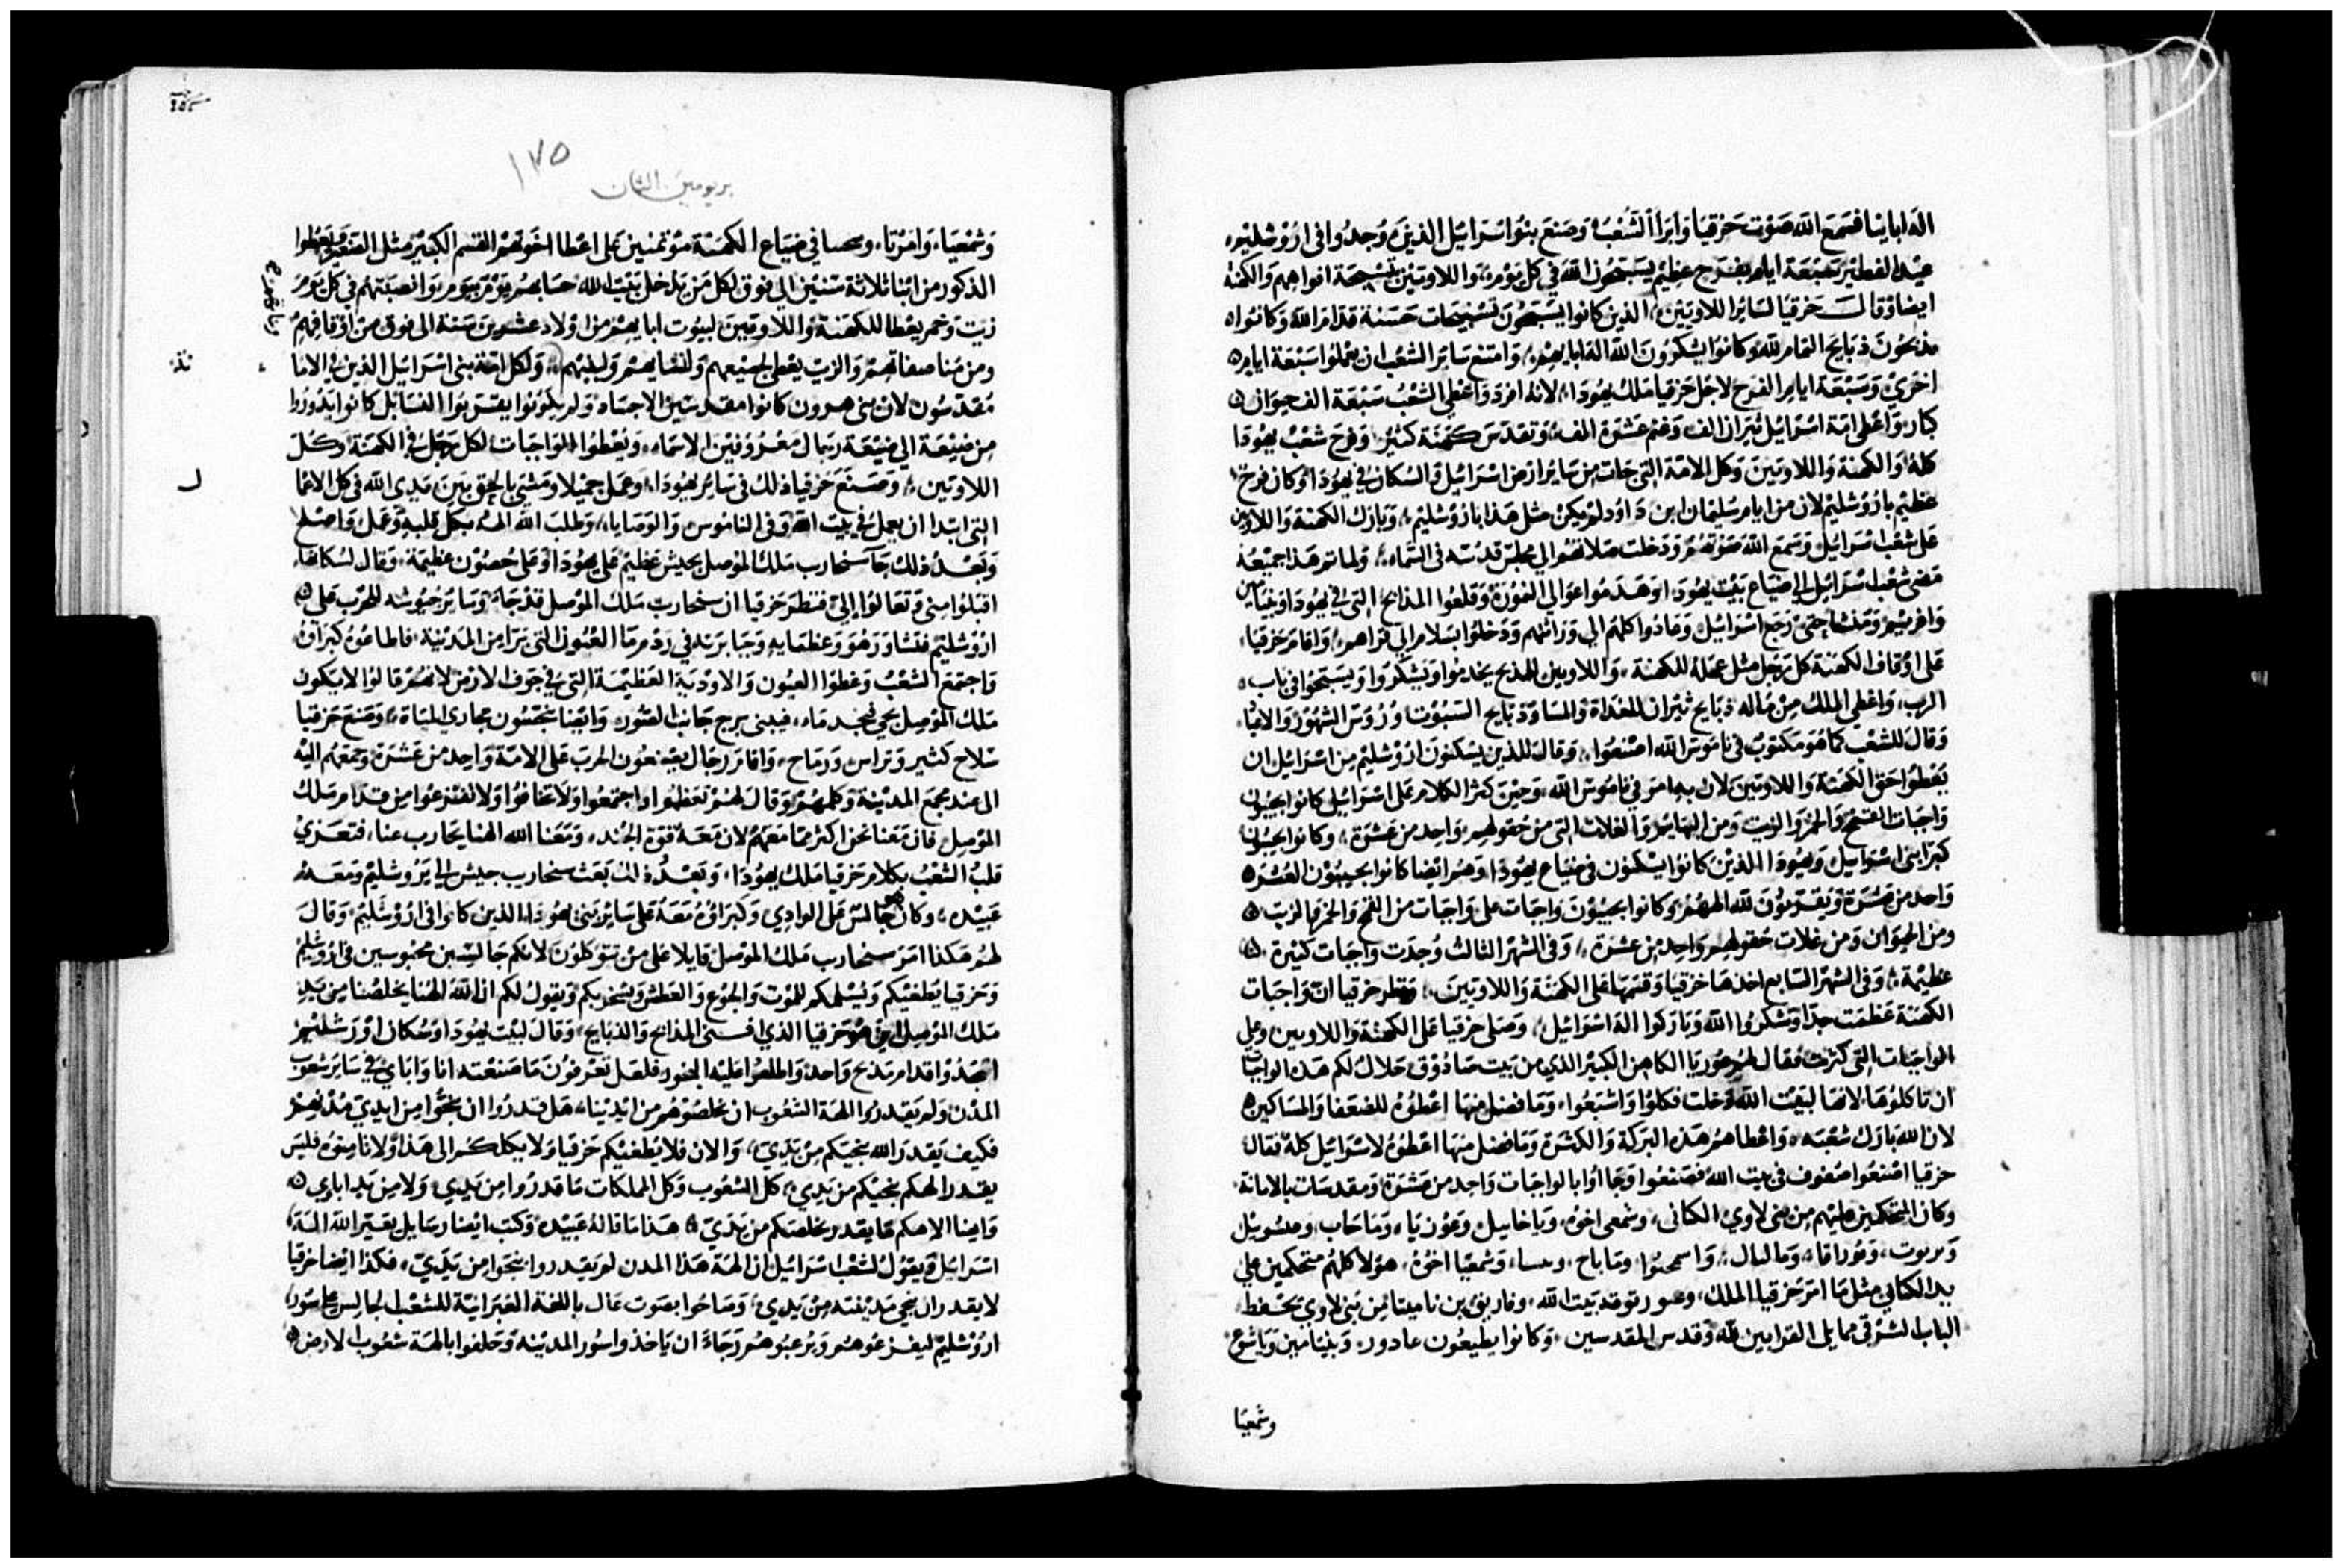 اله ابائنا فسمع الله صوت حزقيا وابرا الشعب وصنع بنوا اسرائيل الذين وجدوا في اروشليم
عيد الفطير سبعة ايام بفرح عظيم يسبحون الله في كل يوم واللاويين بتسبحة افواههم والكهنة
ايضا وقال حزقيا لسائر اللاويين الذين كانوا يسبحون تسبيحات حسنة قدام الله وكانوا
يذبحون ذبايح التمام لله وكانوا يشكرون الله اله ابايهم وامتنع سائر الشعب ان يعملوا سبعة ايام
اخري وسبعة ايام الفرح لاجل حزقيا ملك يهودا لانه افرد واعطي الشعب سبعة الف حيوان
كبار واعطي امة اسرائيل ثيران الف وغنم عشرة الف وتقدس كهنة كثير وفرح شعب يهودا
كله والكهنة واللاويين وكل الامة التي جات من سائر ارض اسرائيل والسكان في يهودا وكان فرح
عظيم باروشليم لان من ايام سليمان ابن داود لم يكن مثل هذا باروشليم وبارك الكهنة واللاويين
على شعب اسرائيل وسمع الله صوتهم ودخلت صلاتهم الي مجلس قدسه في السماء ولما تم هذا جميعه
مضي شعب اسرائيل الي ضياع بيت يهودا وهدموا عوالي الغونة وقلعوا المذابح التي في يهودا وبنيامين
وافريم ومنشا حتى رجع اسرائيل وعادوا كلهم الي وراثتهم ودخلوا بسلام الي قراهم واقام حزقيا
على اوقاف الكهنة كل رجل مثل عمله للكهنة واللاويين للمذبح يخدموا ويشكروا ويسبحوا في باب
الرب واعطي الملك من ماله ذبايح ثيران للغداة والمسا وذبايح السبوت ورؤس الشهور والاعياد
وقال للشعب كما هو مكتوب في ناموس الله اصنعوا وقال للذين يسكنون اروشليم من اسرائيل ان
يعطوا حق الكهنة واللاويين لان بهذا امر في ناموس الله وحين كثر الكلام على اسرائيل كانوا يجيبون
واجبات القمح والخمر والزيت ومن البهايم والغلات التي من حقولهم واحد من عشرة وكانوا يجيبون
كبرا بني اسرائيل ويهودا الذين كانوا يسكنون في ضياع يهودا وهم ايضا كانوا يجيبون العشرة
واحد من عشرة ويقدمون لله الههم وكانوا يجيبون واجبات على واجبات من القمح والخمر والزيت
ومن الحيوان ومن غلات حقولهم واحد من عشرة وفي الشهر الثالث وجدت واجبات كثيرة
عظيمة وفي الشهر السابع اخذها حزقيا وقسمها على الكهنة واللاويين ونظر حزقيا ان واجبات
الكهنة عظمت جدا وشكروا الله وباركوا اله اسرائيل وصلى حزقيا على الكهنة واللاويين وعلى
الواجبات التي كثرت فقال لهم عوريا الكاهن الكبير الذي من بيت صادوق حلال لكم هذه الواجبات
ان تاكلوها لانها لبيت الله دخلت فكلوا واشبعوا وما فضل منها اعطوه للضعفا والمساكين
لان الله بارك شعبه واعطاهم هذه البركة والكثرة وما فضل منها اعطوه لاسرائيل كله فقال
حزقيا اصنعوا صفوف في بيت الله فصنعوا وجاؤا بالواجبات واحد من عشرة ومقدسات بالامانة
وكان المتحكمين عليهم من بني لاوي الكاني وشمعي اخوه وياخاييل وعوزيا وماحاب ومسويل
ويربوت وبوراقا ومالبال واسمحنوا وماباح وشمعيا اخوه هولا كلهم متحكمين على
يد الكناني مثل ما امر حزقيا الملك بيت الله بن ناميتا من بني لاوي يحفظ
الباب الشرقي مما يلي القرابين لله وقدس المقدسين وكانوا يطيعون عادور وبنيامين وياشوع
وشمعيا
١٧٥
بريومين الثان
وشمعيا وامرتا في ضياع الكهنة موتمنين على اعطا اخوتهم القسم الكبير مثل الصغير ويعطوا
الذكور من ابنا ثلاثة سنين الي فوق لكل من يدخل بيت الله حسابهم يوم بيوم وانصبتهم في كل يوم
زيت وخمر يعطا للكهنة واللاويين لبيوت ابايهم من اولاد عشرين سنة الى فوق من اوقافهم
ومن مناصفاتهم والزيت يعطي لجميعهم ولنسايهم ولبنيهم ولكل امة بني اسرائيل الذين في الاما
مقدسون لان بني هرون كانوا مقدسين الاجساد ولم يكونوا يقتربوا النسا بل كانوا يدوروا
من ضيعة الي ضيعة رجال معروفين الاسماء ويعطوا الواجبات لكل رجل في الكهنة وكل
اللاويين وصنع حزقيا ذلك في سائر يهودا وعمل جميلا ومشي بالحق بين يدي الله في كل الاعمال
التي ابتدا ان يعمل في بيت الله وفي الناموس والوصايا وطلب الله الهه بكل قلبه وعمل واصلح
وبعد ذلك جا سنحارب ملك الموصل بجيش عظيم على يهودا وعلى حصون عظيمة وقال لسكانها
اقبلوا مني وتعالوا الي فنظر حزقيا ان سنحارب ملك الموصل قد جاء وسائر جيوشه للحرب على
اروشليم فتشاور هو وعظمايه وجبابرته في ردم ما العيون التي برا من المدينة فاطاعوه كبراوه
واجتمع الشعب وغطوا العيون والاودية العظيمة التي في جوف الارض لانهم قالوا لا يكون
ملك الموصل يجي فيجد ماء فبني برج جانب السور وايضا يحبسون مجاري المياة وصنع حزقيا
سلاح كثير وتراس ورماح واقام رجال يصنعون الحرب على الامة واحد من عشرة وجمعهم اليه
الى عند مجمع المدينة وكلمهم وقال لهم تعظموا واجتمعوا ولا تخافوا ولا تفزعوا من قدام ملك
الموصل فان معنا نحن اكثر مما معهم لان معه قوة الجند ومعنا الله الهنا يحارب عنا فتعزي
قلب الشعب بكلام حزقيا ملك يهودا وبعد ذلك بعث سنحارب جيش الي يروشليم ومعه
عبيده وكان هو جالس على الوادي وكبراوه معه على سائر بني يهودا الذين كانوا في اروشليم وقال
لهم هكذا امر سنحارب ملك الموصل قايلا على من تتوكلون لانكم جالسين محبوسين في اروشليم
وحزقيا يطغيكم ويسلمكم للموت والجوع والعطش ويسخر بكم ويقول لكم ان الله الهنا يخلصنا من يد
ملك الموصل اين هو حزقيا الذي افنى المذابح والذبايح وقال لبيت يهودا وسكان اورشليم
اسجدوا قدام مذبح واحد واطلعوا عليه البخور فلعل تعرفون ما صنعته انا واباي في سائر شعوب
المدن ولم يقدروا الهة الشعوب ان يخلصوهم من ايدينا هل قدروا ان ينجوا من ايدي مدنهم
فكيف يقدر الله ينجيكم من يدي والان فلا يطغيكم حزقيا ولا يكلكم الى هذا ولا تامنوه فليس
يقدر الهكم ينجيكم من يدي كل الشعوب وكل المملكات ما قدروا من يدي ولا من يد اباوي
وايضا الاهكم ما يقدر يخلصكم من يدي هذا ما قاله عبيده وكتب ايضا رسايل بعير الله اله
اسرائيل ويقول لشعب اسرائيل ان الهة هذا المدن لم يقدروا ينجوا من يدي فكذا ايضا حزقيا
لا يقدر ان ينجي مدينته من يدي وصاحوا بصوت عال باللغة العبرانية للشعب الجالس على سور
اروشليم ليفزعوهم ويرعبوهم رجاء ان ياخذوا سور المدينه وحلفوا بالهة شعوب الارض